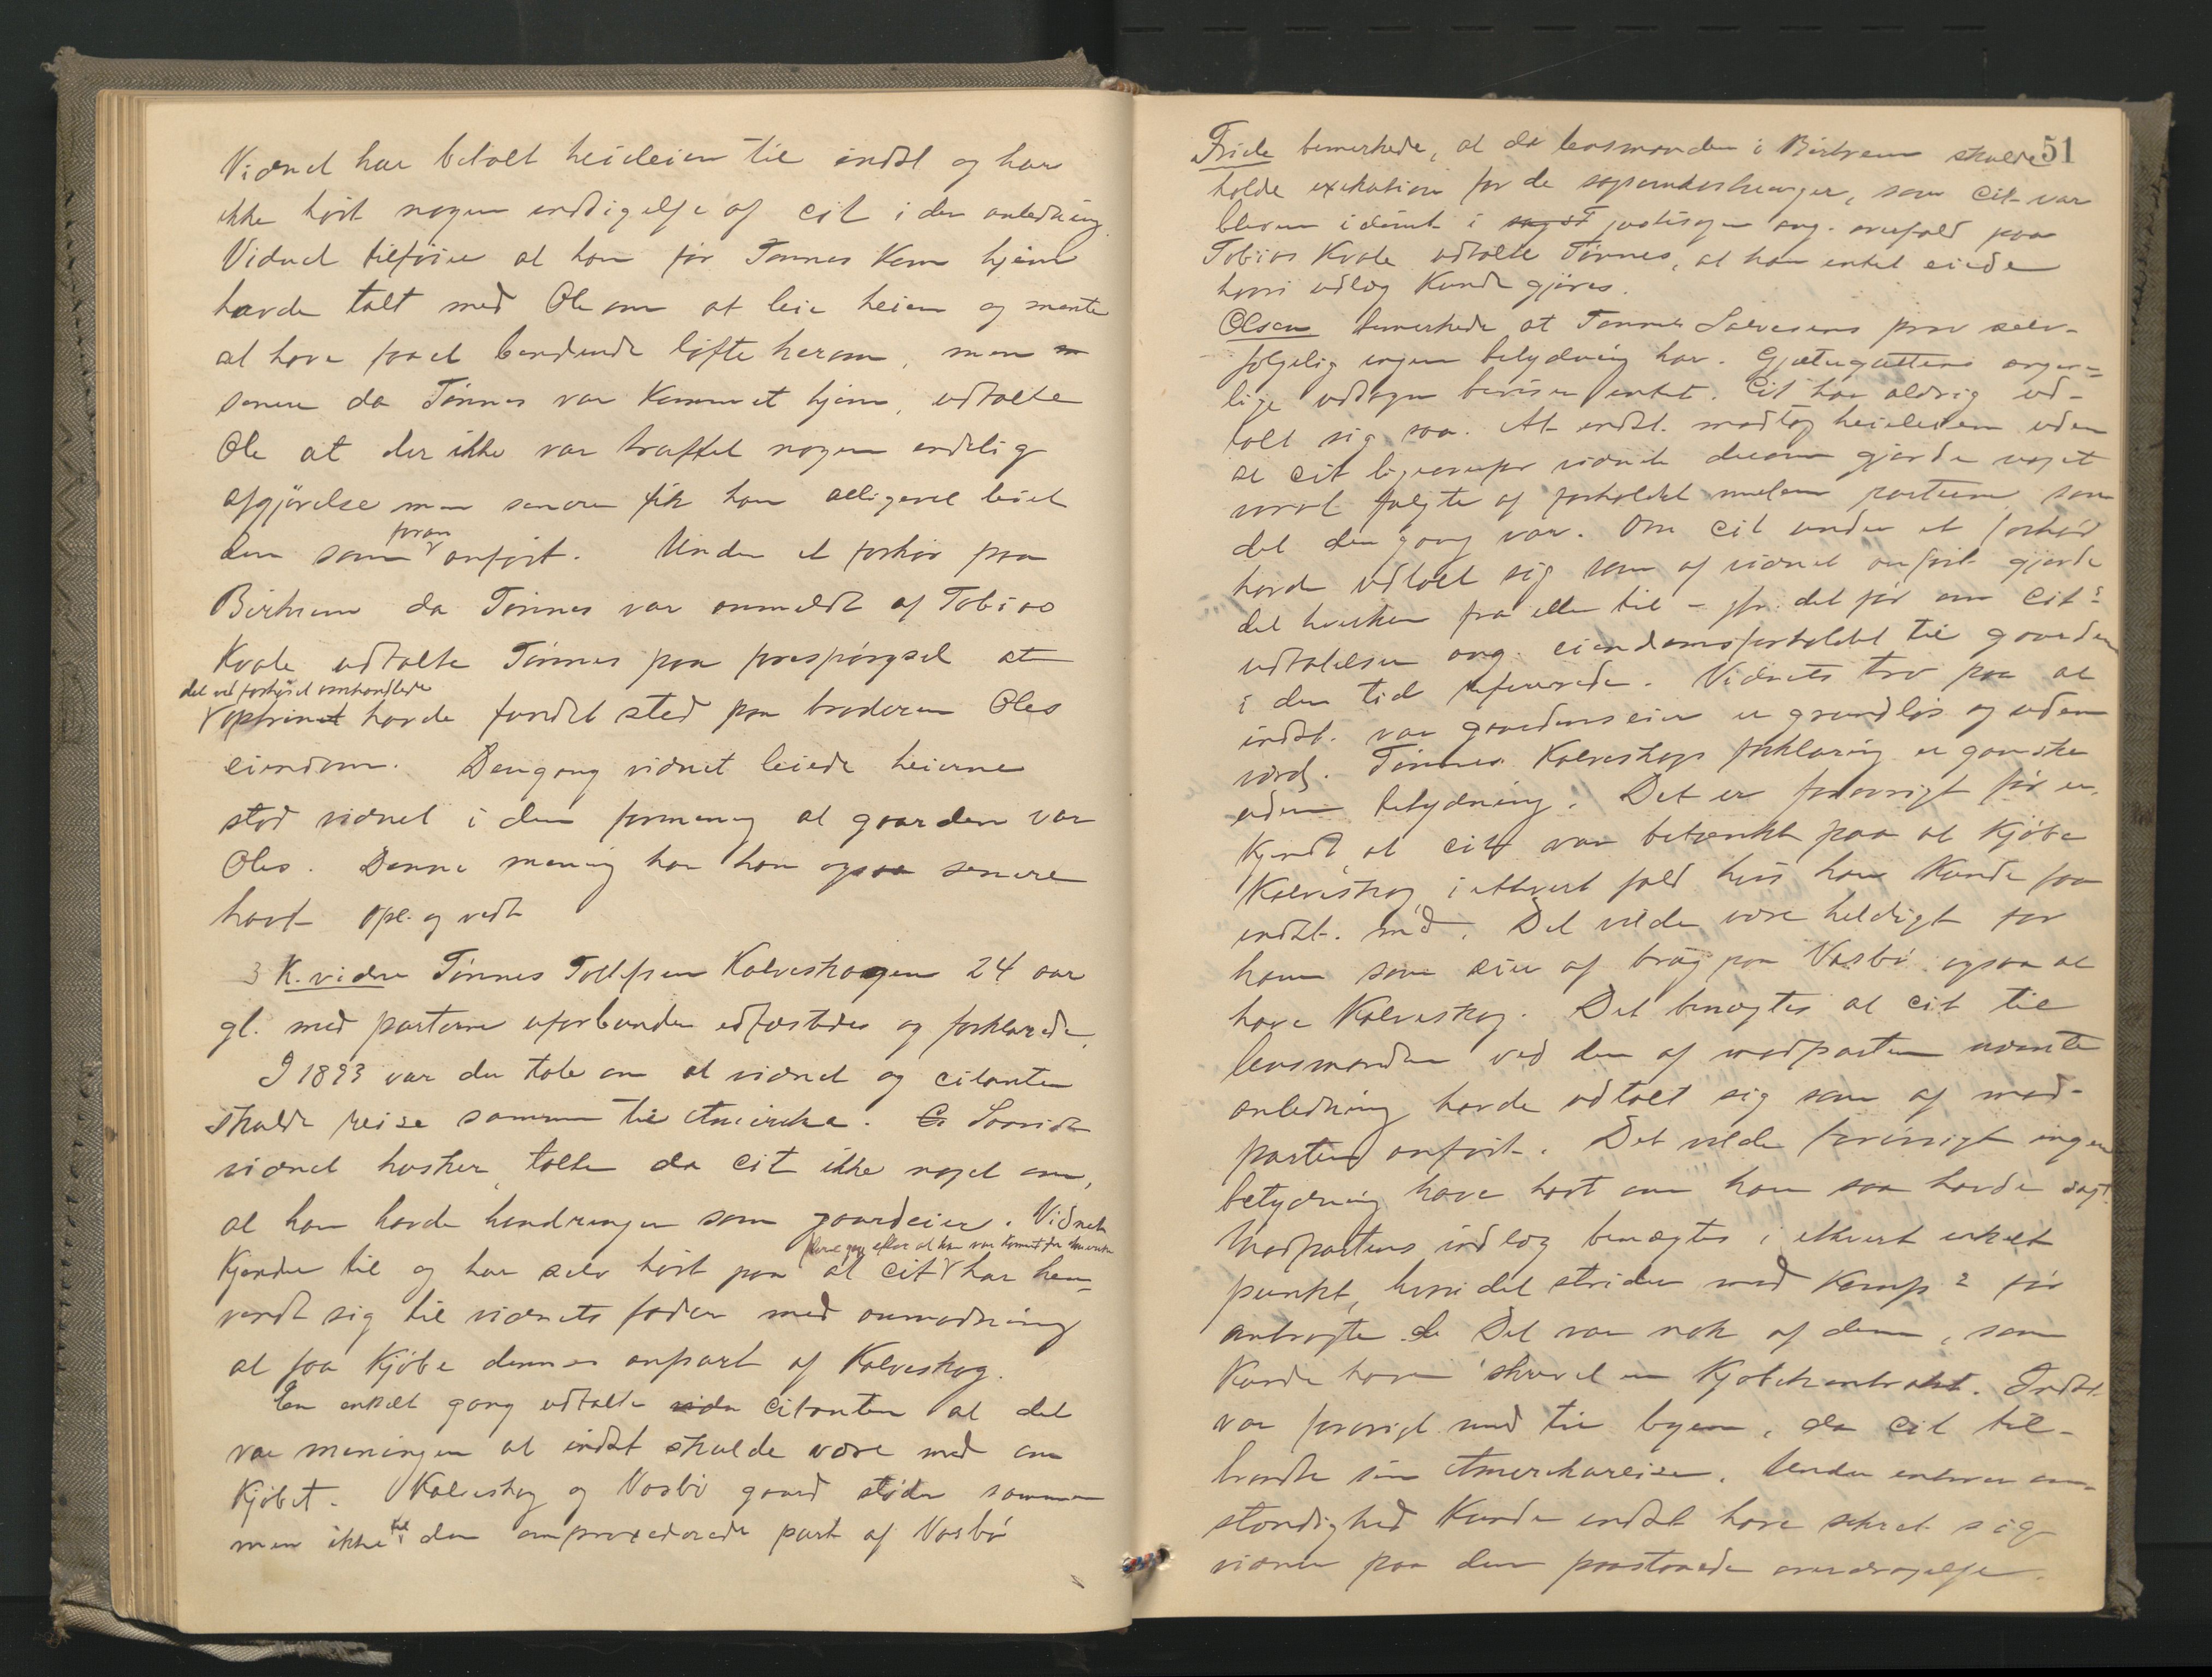 Vidnet har betalt heieleien til indst og har
ikke hørt nogen indsigelse af cit i den anledning.
Vidnet tilføier at han før Tønnes kom hjem
havde talt med Ole om at leie heien og mente
at have faaet bindende løfte herom, men
senere da Tønnes var kommet hjem, udtalte
Ole at der ikke var truffet nogen endelig
afgjørelse men senere fik han alligevel leiet
den som foran anført. Under et forhør paa
Birkrem da Tønnes var anmeldt af Tobias
Kvale udtalte Tønnes paa forespørgsel at
det ved forhøret omhandlede
optrinet havde fundet sted paa broderen Oles
eiendom. Dengang vidnet leiede heierne
stod vidnet i den formening at gaarden var
Oles. Denne mening har han ogsaa senere
havt. Opl. og vedt
3 K. vidne Tønnes Tollefsen Kalveskogen 24 aar
gl. med parterne uforbunden edfæstedes og forklarede.
I 1893 var der tale om at vidnet og citanten
skulde reise sammen til Amerika. Saavidt
vidnet husker, talte da cit ikke noget om,
at han havde hindringer som gaardeier. Vidnet
flere gang efter at han var kommet fra Amerika
kjender til og har selv hørt paa at cit har hen-
vendt sig til vidnets fader med anmodning
at faa kjøbe dennes anpart af Kalveskog.
En enkelt gang udtalte citanten at det
var meningen at indst skulde være med om
kjøbet. Kalveskog og Vasbø gaard støder sammen
men ikke til den omprocederede part af Vasbø
51
Friele bemerkede, at da lensmanden i Birkrem skulde
holde exekution for de sagsomkostninger, som cit var
bleven idømt i justisagen ang. overfald paa
Tobias Kvale udtalte Tønnes, at han intet eiede
hvori udlæg kunde gjøres.
Olsen bemerkede at Tønnes Salvesens prov selv-
følgelig ingen betydning har. Gjæterguttens angive-
lige udsagn beviser intet. Cit har aldrig ud-
talt sig saa. At indst. modtog heieleien uden
at cit ligeoverfor vidnet derom gjorde noget
var en følge af forholdet mellem parterne som
det den gang var. Om cit under et forhør
havde udtalt sig som af vidnet anført gjorde
det hverken fra eller til – jfr. det før om cits
udtalelser ang. eiendomsforholdet til gaarden
i den tid refererede. Vidnets tro paa at
indst. var gaardens eier er grundløs og uden
værd. Tønnes Kalveskogs forklaring er ganske
uden betydning. Det er forøvrigt før er-
kjendt at cit var betænkt paa at kjøbe
Kalveskog, i ethvert fald hvis han kunde faa
indst. med. Det vilde være heldigt for
ham som eier af brug paa Vasbø ogsaa at
have Kalveskog. Det benægtes at cit til
lensmanden ved den af modparten nævnte
anledning havde udtalt sig som af mod-
parten anført. Det vilde forøvrigt ingen
betydning have havt om han saa havde sagt.
Modpartens indlæg benægtes i ethvert enkelt
punkt, hvori det strider med komp.s før
anbragte. Det var nok af dem, som
kunde have skrevet en kjøbekontrakt. Indst
var forøvrigt med til byen, da cit til-
traadte sin Amerikareise. Under enhver om-
stændighed kunde indst have sikret sig
vidner paa den paastaaede overdragelse.